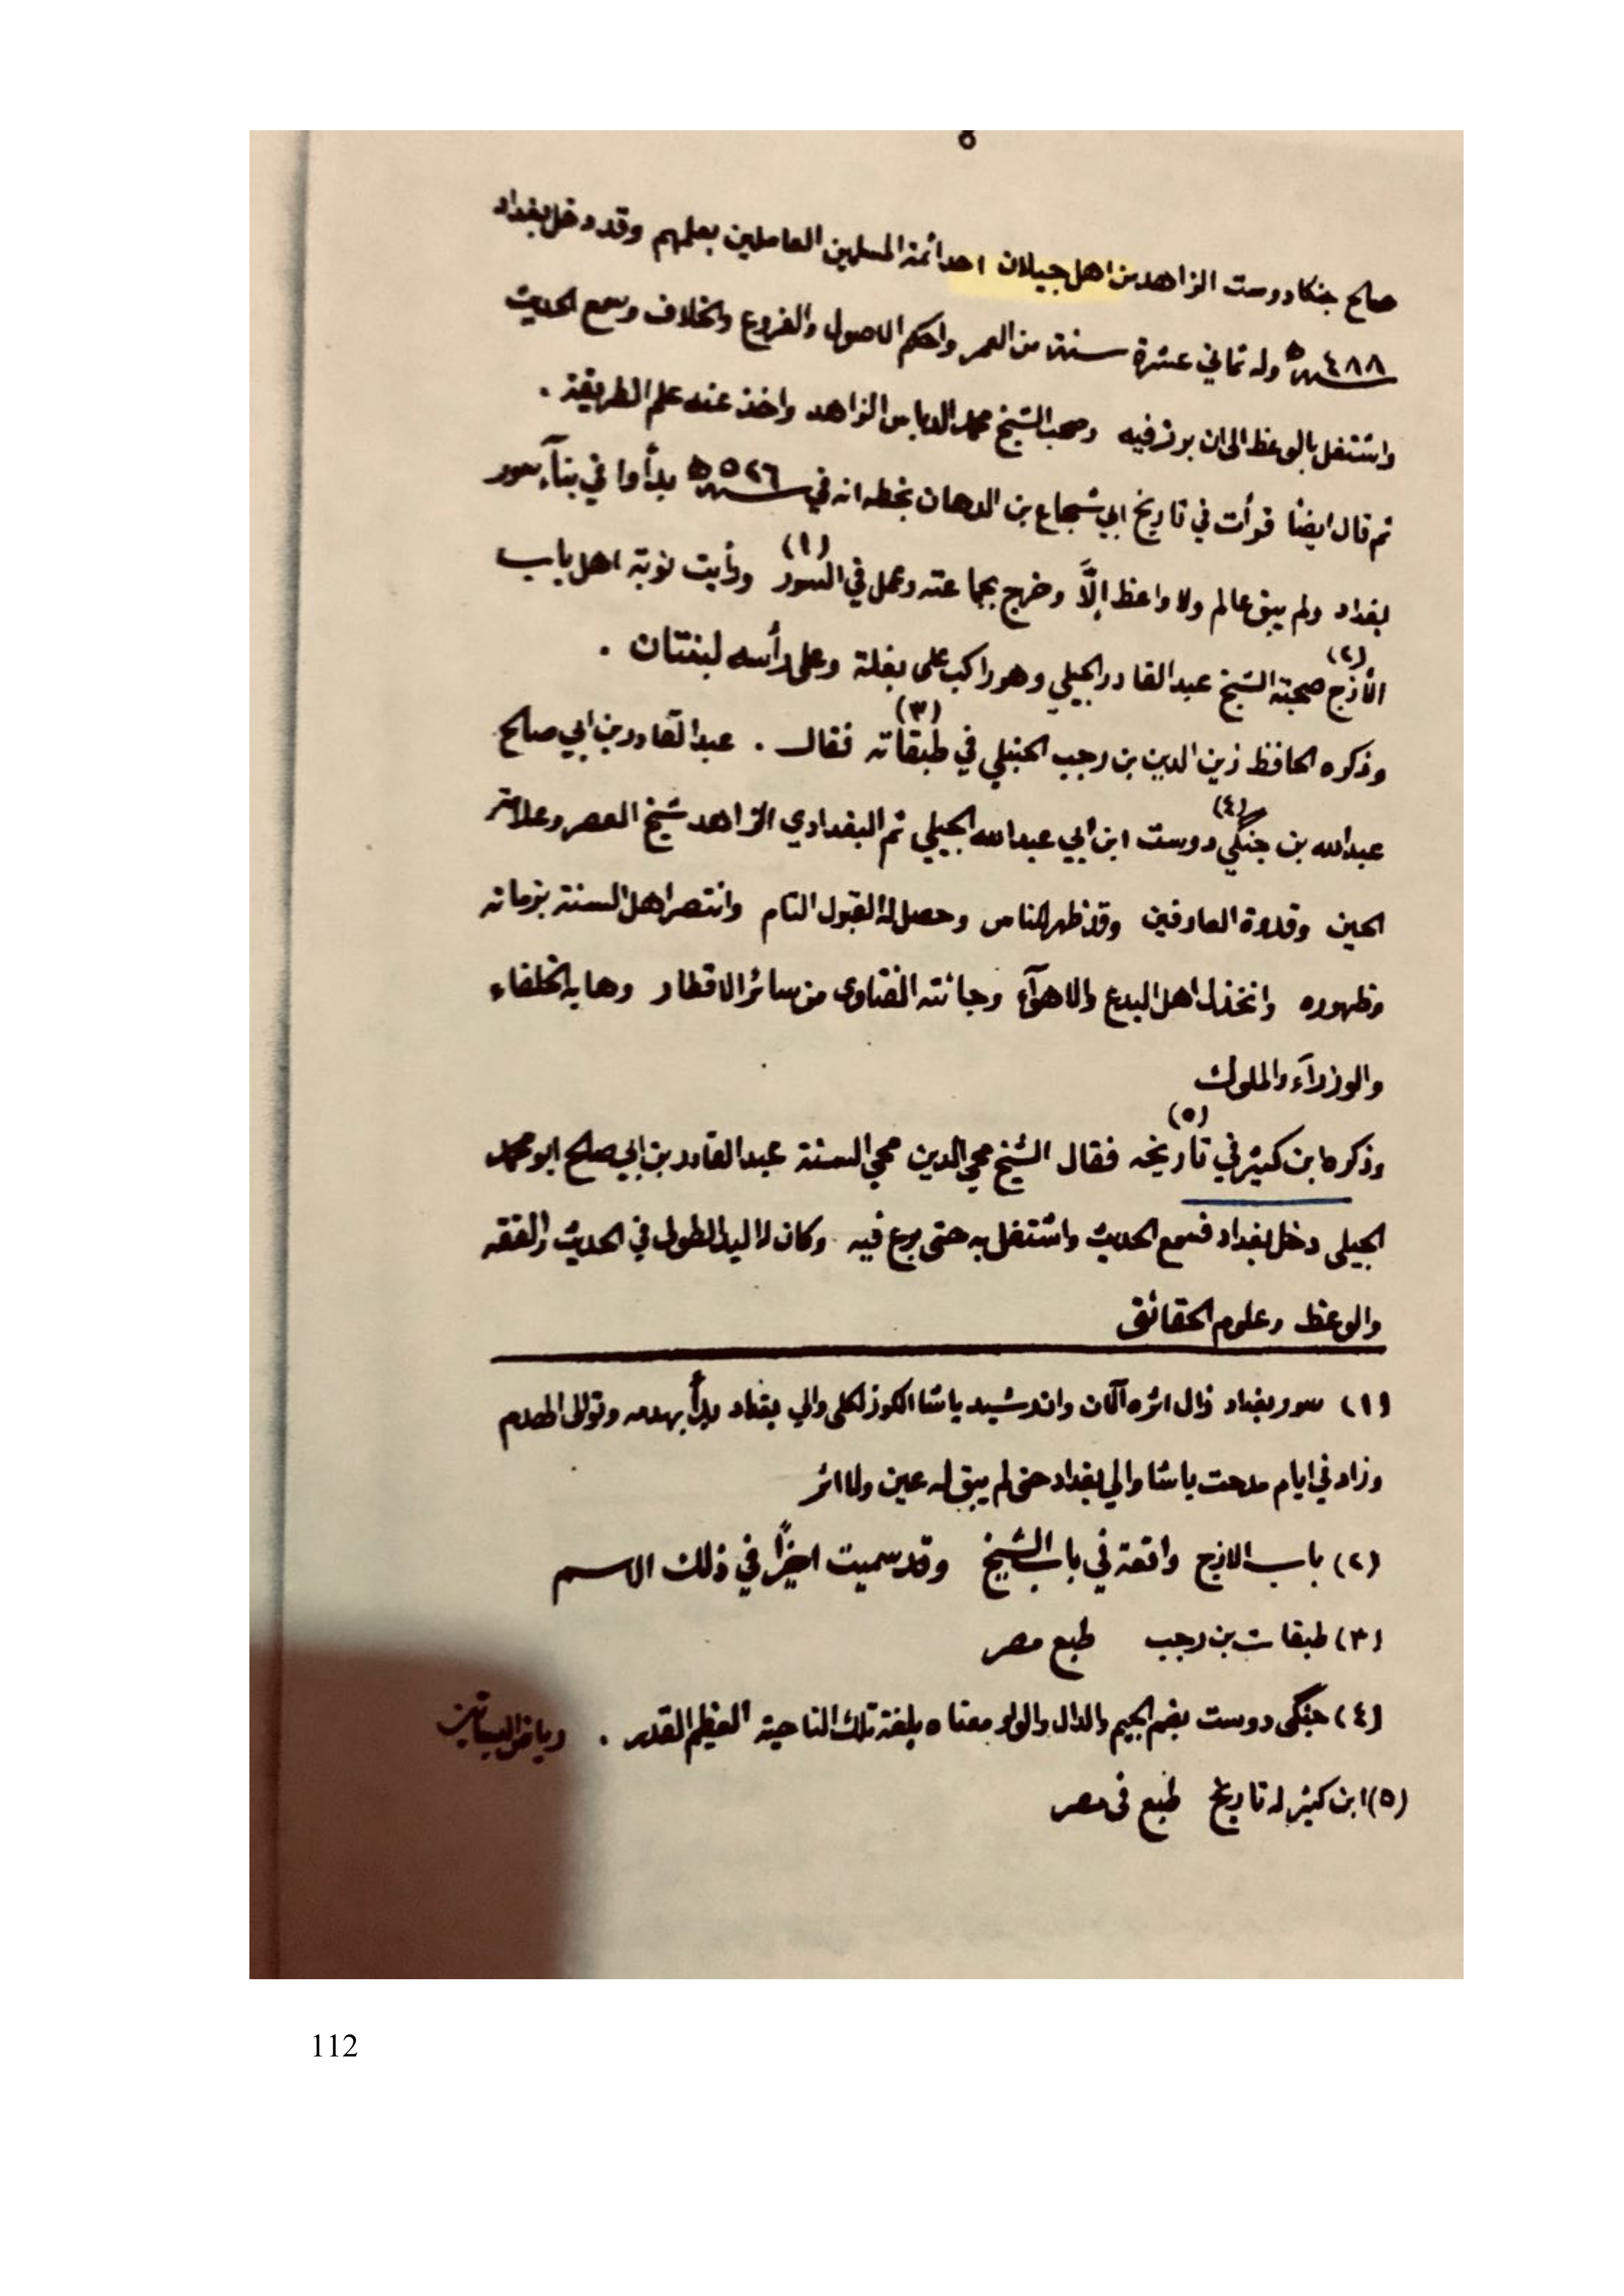 ٥
صالح جنكادوست الزاهد من اهل جيلان احد ائمة المسلمين العاملين بعلمهم وقد دخل بغداد
سنة ٤٨٨ ه وله ثماني عشرة سنة من العمر واحكم الاصول والفروع والخلاف وسمع الحديث
واشتغل بالوعظ الى ان برز فيه وصحب الشيخ محمد الدباس الزاهد واخذ عنه علم الطريقة .
ثم قال ايضا قرأت في تاريخ ابي شجاع بن الدهان بخطه انه في سنة ٥٢٦ ه بدأوا في بناء سور
بغداد ولم يبق عالم ولا واعظ إلَّا وخرج بجماعته وعمل في السور (١) ورأيت نوبة اهل باب
الأزج (٢) صحبة الشيخ عبد القادر الجيلي وهو راكب على بغلة وعلى رأسه لبنتان .
وذكره الحافظ زين الدين بن رجب الحنبلي في طبقاته (٣) فقال . عبد القادر بن ابي صالح
عبدالله بن جنكي (٤) دوست ابن ابي عبدالله الجيلي ثم البغدادي الزاهد شيخ العصر وعلامة
الحين وقدوة العارفين وقد ظهر للناس وحصل له القبول التام وانتصر اهل السنة بزمانه
وظهوره وانخذل اهل البدع والاهوآء وجائته الفتاوى من سائر الاقطار وهابه الخلفاء
والوزرآء والملوك
وذكره ابن كثير في تاريخه (٥) فقال الشيخ محي الدين محي السنة عبد القادر بن ابي صالح ابو محمد
الجيلي دخل بغداد فسمع الحديث واشتغل به حتى برع فيه وكان له اليد الطولى في الحديث والفقه
والوعظ وعلوم الحقائق
(١) سور بغداد زال اثره الآن وان رشيد باشا الكوزلكلي والي بغداد بدأ بهدمه وتوالى الهدم
وزاد في ايام مدحت باشا والي بغداد حتى لم يبق له عين ولا اثر
(٢) باب الازج واقعة في باب الشيخ وقد سميت اخيرًا في ذلك الاسم
(٣) طبقات بن رجب طبع مصر
(٤) جنكي دوست بضم الجيم والدال والواو معناه بلغة تلك الناحية العظيم القدر .
(٥) ابن كثير له تاريخ طبع في مصر
112